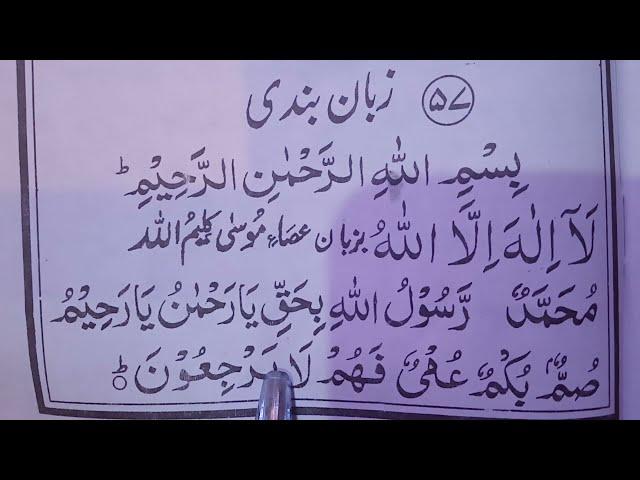 ۵۷ زبان بندی
بِسْمِ اللهِ الرَّحْمٰنِ الرَّحِيْمِ ؕ
لَآ اِلٰهَ اِلَّا اللهُ بزبان عصاءِ مُوسٰی کلیمُ اللہ
مُحَمَّدٌ رَّسُوْلُ اللهِ بِحَقِّ يَا رَحْمٰنُ يَا رَحِيْمُ
صُمٌّۢ بُكْمٌ عُمْیٌ فَهُمْ لَا يَرْجِعُوْنَ ؕ